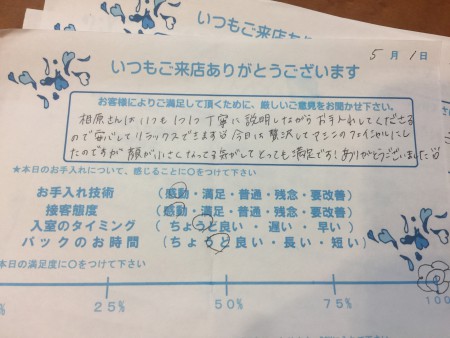 いつもご来店ありがとうございます
5月1日
いつもご来店ありがとうございます
お客様によりご満足して頂くために、厳しいご意見をお聞かせ下さい。
相原さんはいつも1つ1つ丁寧に説明しながらお手入れしてくださる
ので安心してリラックスできます 今日は贅沢してマシンフェイシャルにし
たのですが 顔が小さくなってる気がしてとっても満足です！ありがとうございました
★本日のお手入について、感じることに○をつけて下さい
お手入れ技術 （感動・満足・普通・残念・要改善）
接客態度 （感動・満足・普通・残念・要改善）
入室のタイミング （ちょうど良い・遅い・早い）
パックのお時間 （ちょうど良い・長い・短い）
本日の満足度に○をつけて下さい
25% 50% 75% 100